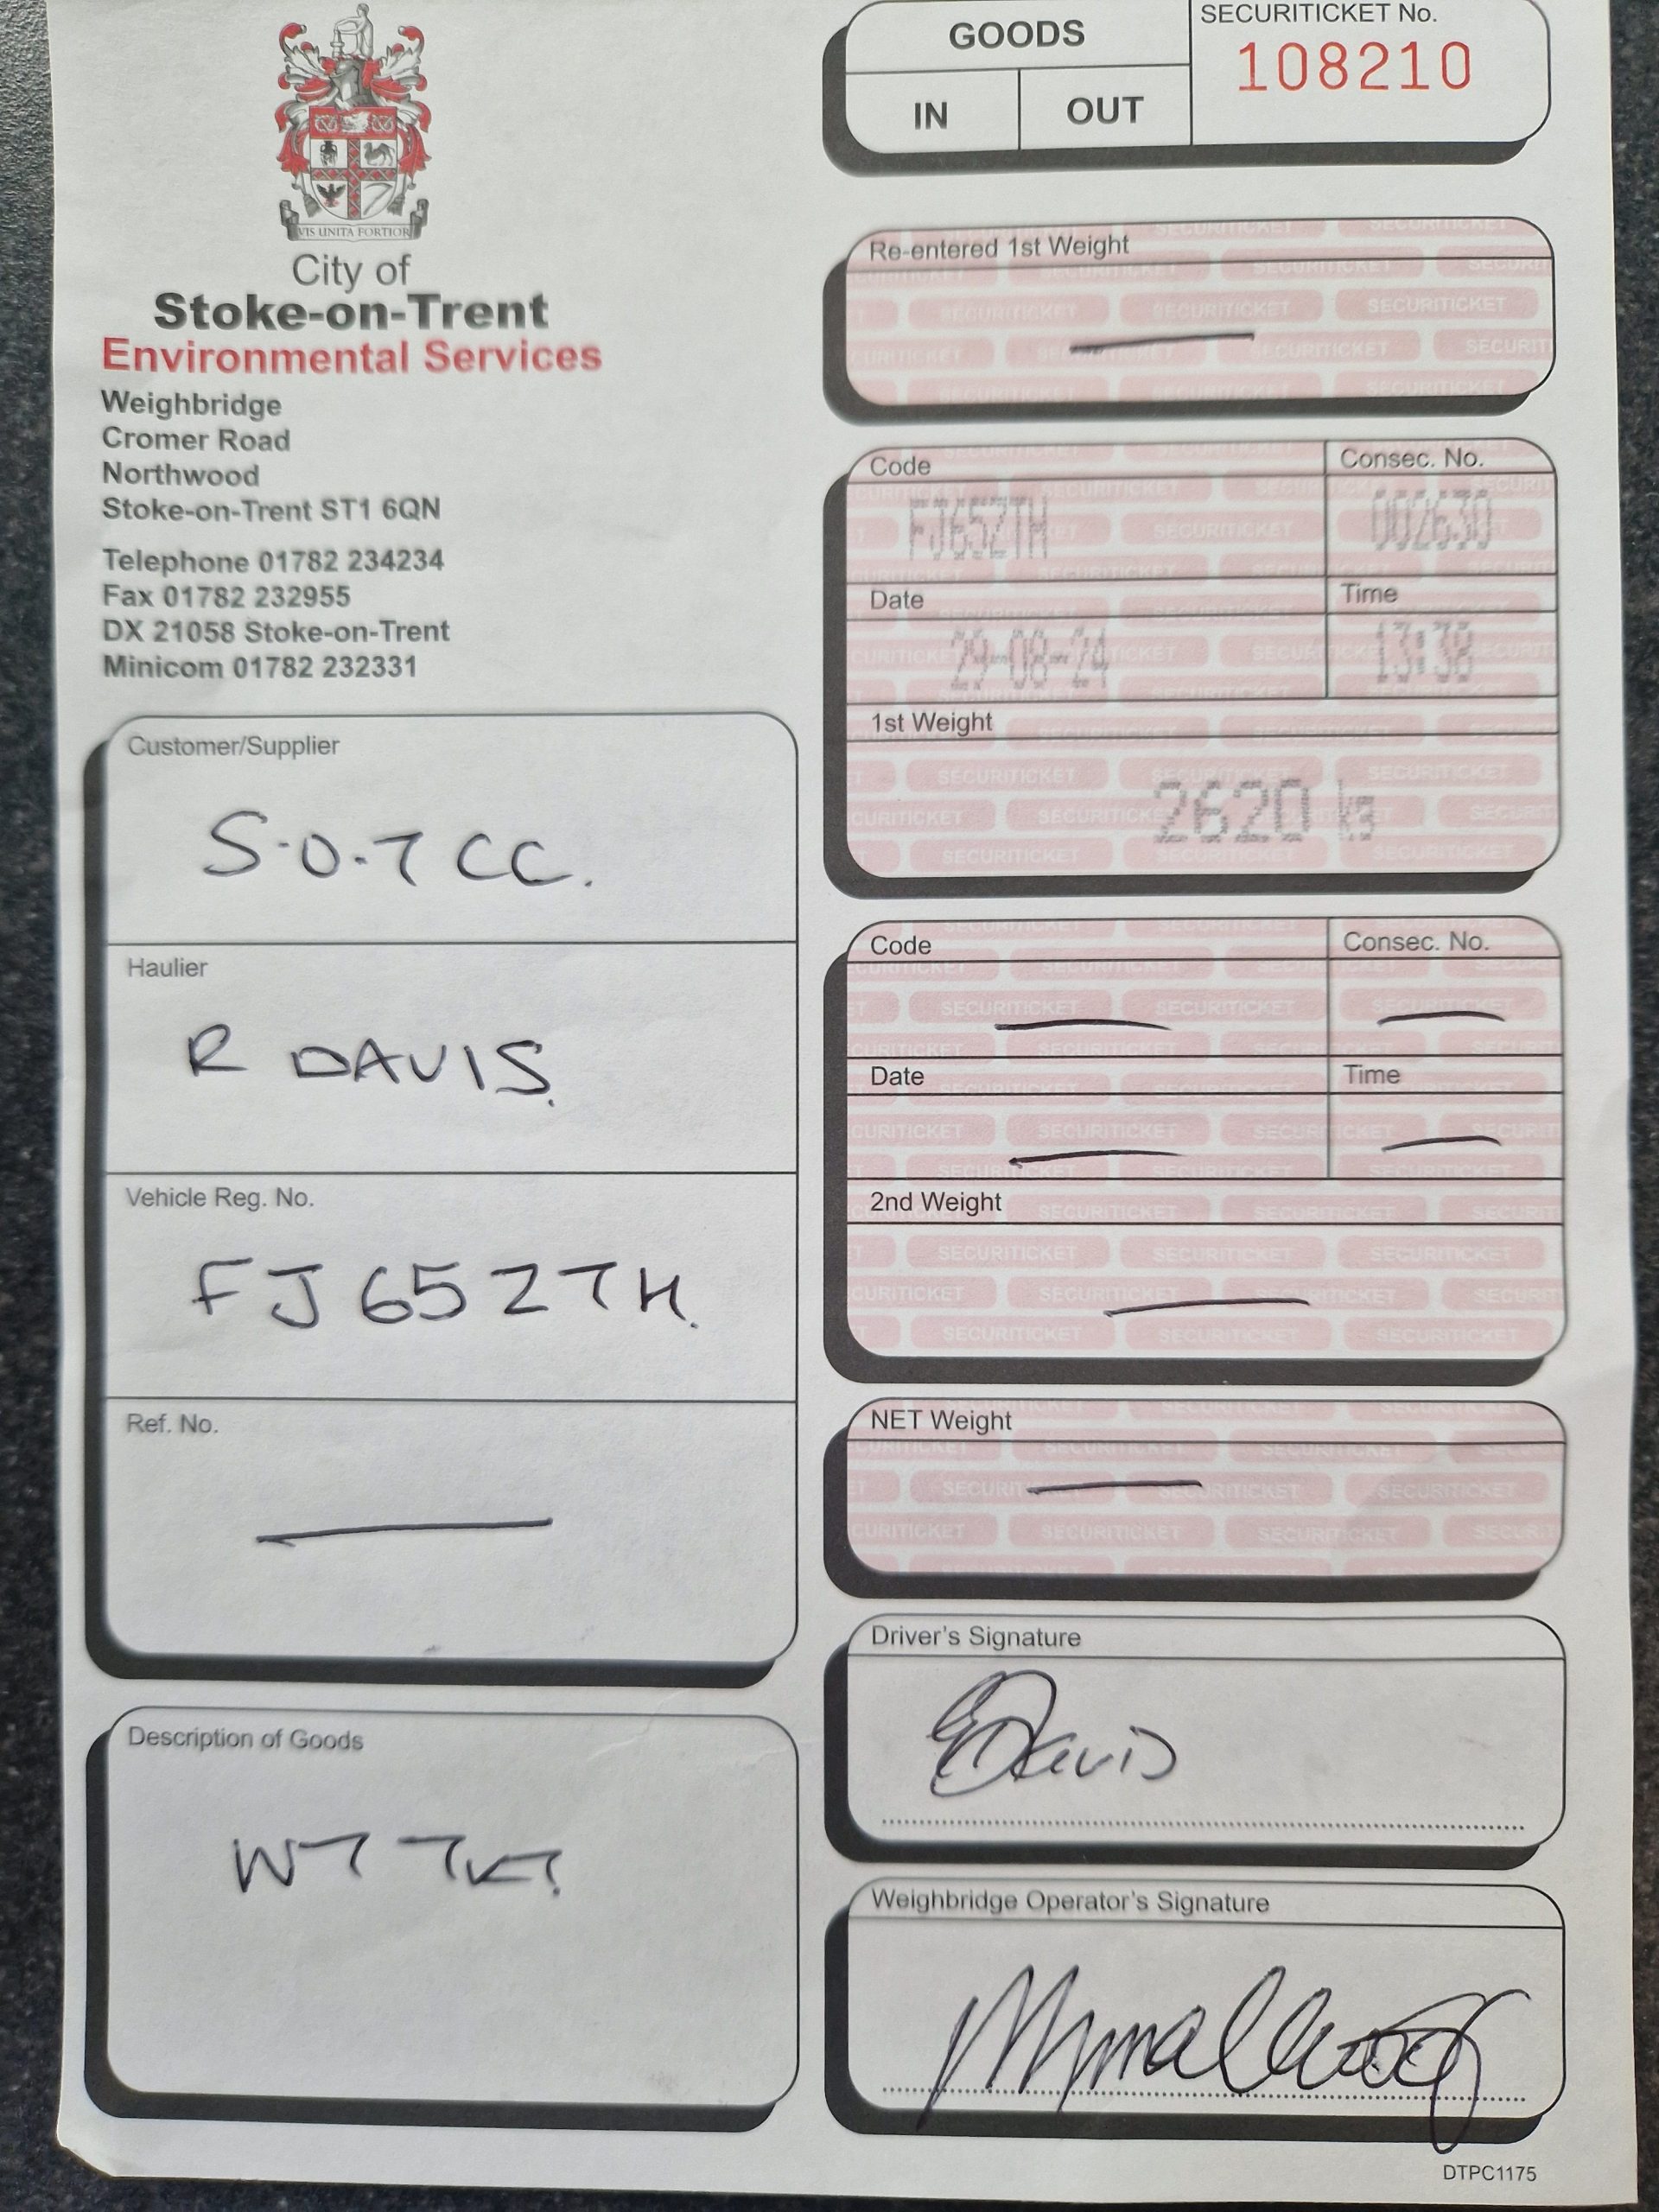 VIS UNITA FORTIOR
City of
Stoke-on-Trent
Environmental Services
Weighbridge
Cromer Road
Northwood
Stoke-on-Trent ST1 6QN
Telephone 01782 234234
Fax 01782 232955
DX 21058 Stoke-on-Trent
Minicom 01782 232331
GOODS
IN
OUT
SECURITICKET No.
108210
Customer/Supplier
S.O.T CC.
Haulier
R DAVIS.
Vehicle Reg. No.
FJ65ZTH.
Ref. No.
Description of Goods
WT TKT.
Re-entered 1st Weight
Code
Consec. No.
FJ65ZTH
002630
Date
Time
29-08-24
13:38
1st Weight
2620 kg
Code
Consec. No.
Date
Time
2nd Weight
NET Weight
Driver's Signature
Davis
Weighbridge Operator's Signature
DTPC1175